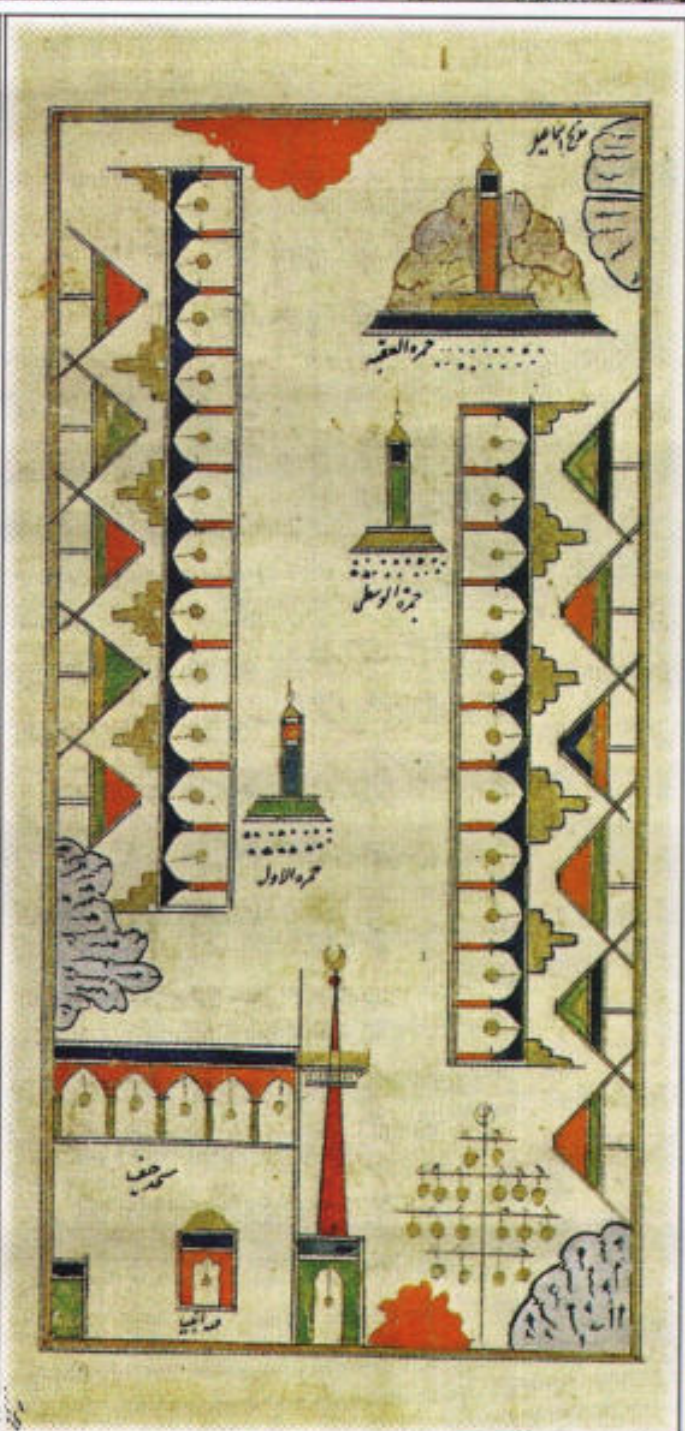 مذبح اسماعيل
جمره العقبه
جمرة الوسطى
جمره الاول
مسجد خيف